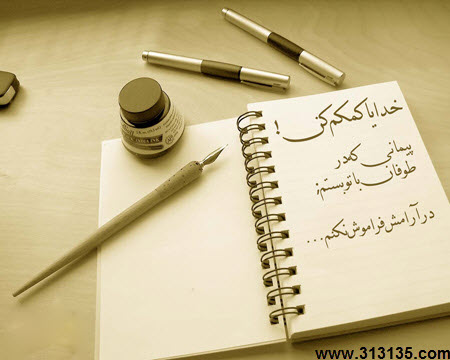 خدایا کمکم کن !
پیمانی که در
طوفان با تو بستم؛
در آرامش فراموش نکنم...
www.313135.com